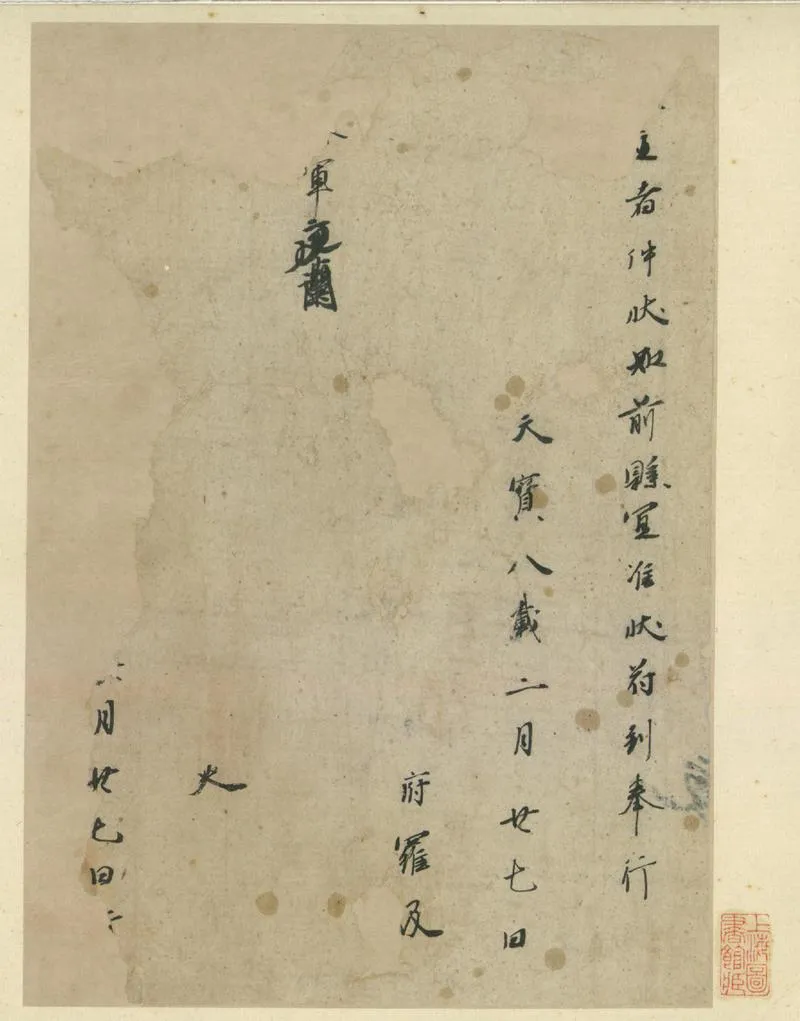 主者件状如前縣宜准状苻到奉行
天寶八載二月廿七日
府羅及
軍 蘭
史
月廿七日
上海圖書館藏